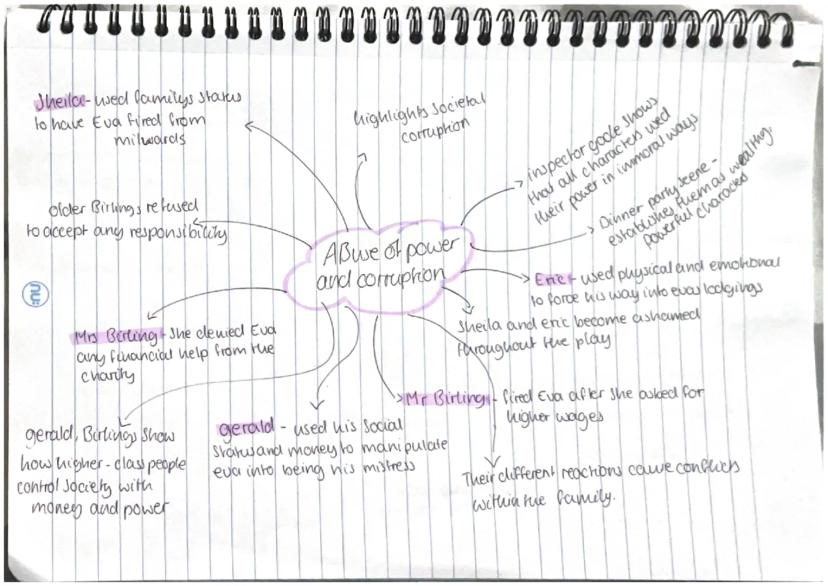 Sheila - used familys status
to have Eva fired from
milwards
highlights societal
corruption
inspector goole shows
that all characters used
their power in immoral ways
Dinner party scene -
establishes them as wealthy,
powerful characters
older Birlings refused
to accept any responsibility
ABuse of power
and corruption
Eric - used physical and emotional
to force his way into evas lodgings
Sheila and eric become ashamed
throughout the play
Mrs Birling - She denied Eva
any financial help from the
charity
Mr Birling - fired Eva after she asked for
higher wages
gerald - used his social
status and money to manipulate
eva into being his mistress
gerald, Birlings show
how higher-class people
control society with
money and power
Their different reactions cause conflicts
within the family.